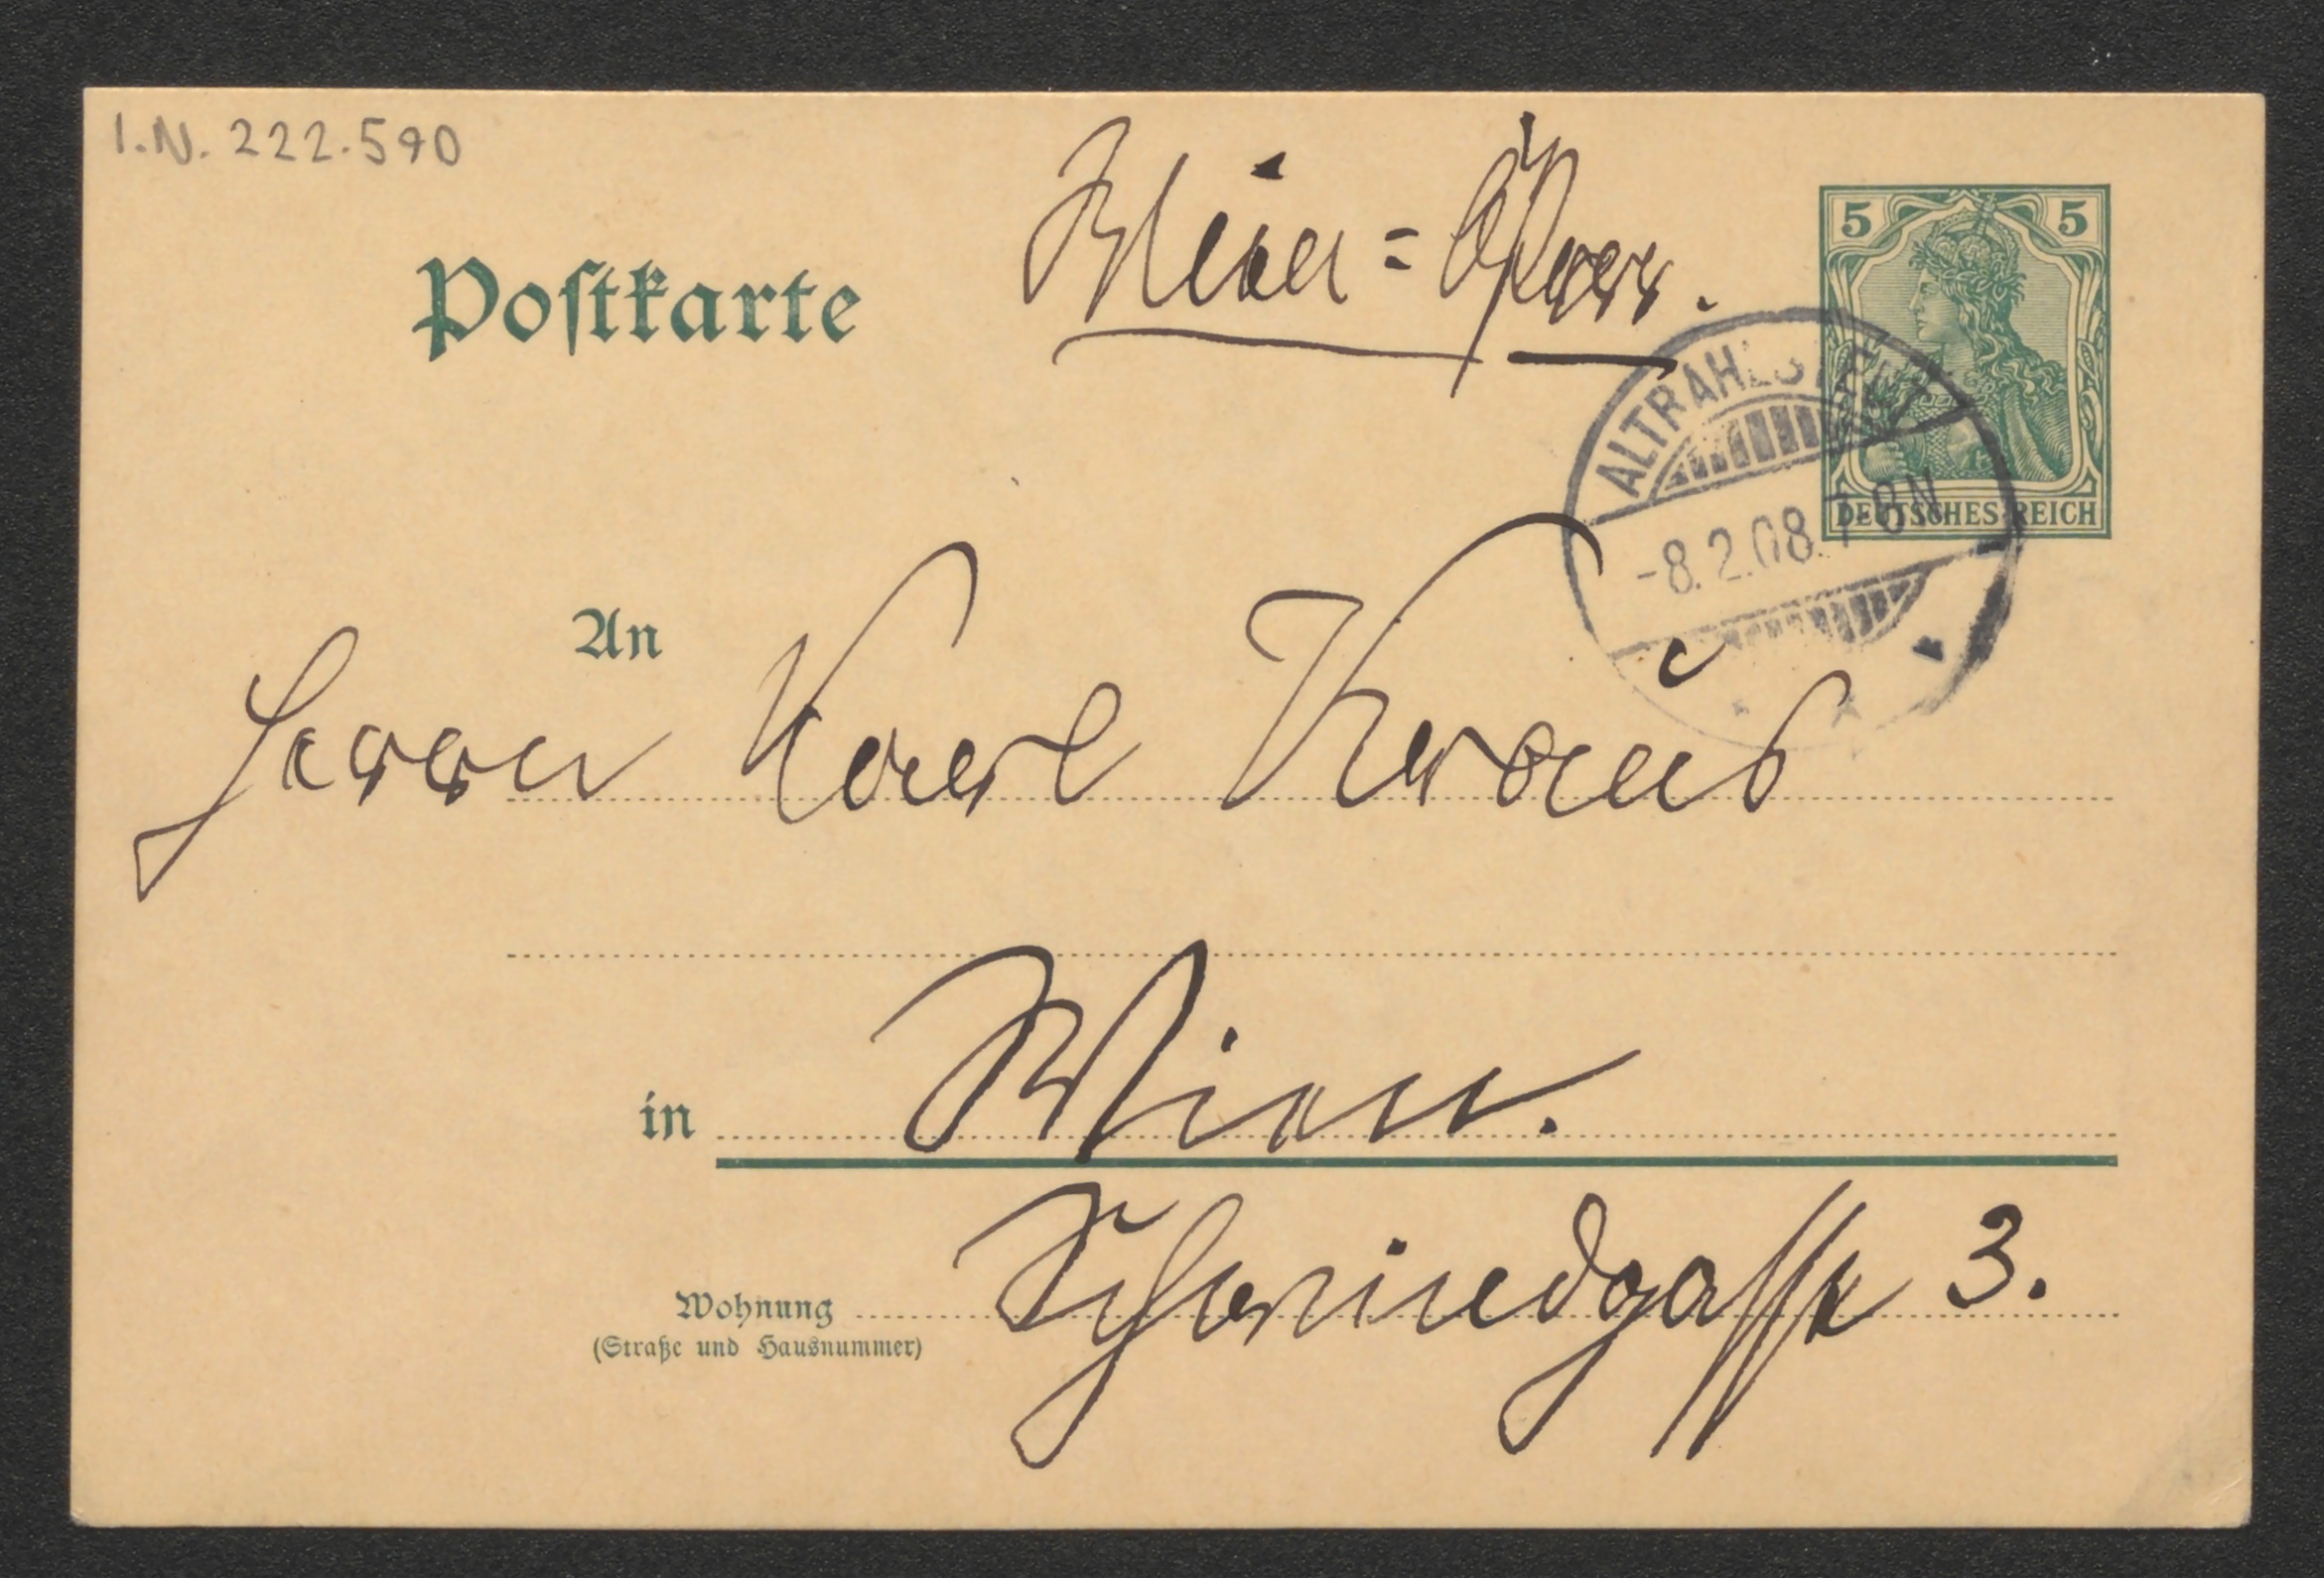 I.N. 222.590
Wien=Österr.
5 5
Postkarte
ALTRAHLSTEDT
-8.2.08.7-8N
DEUTSCHES REICH
An
Herrn Karl Kraus
in Wien.
Wohnung Schwindgasse 3.
(Straße und Hausnummer)